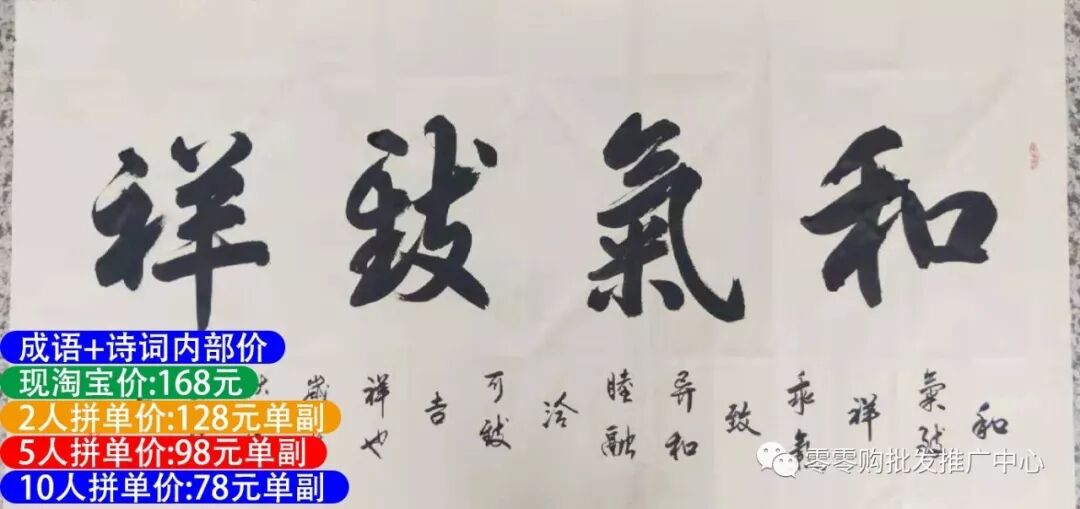 和氣致祥
和
氣致
祥
乖氣
致
异和
睦融
洽
可致
吉
祥也
歲
成语+诗词内部价
现淘宝价:168元
2人拼单价:128元单副
5人拼单价:98元单副
10人拼单价:78元单副
零零购批发推广中心